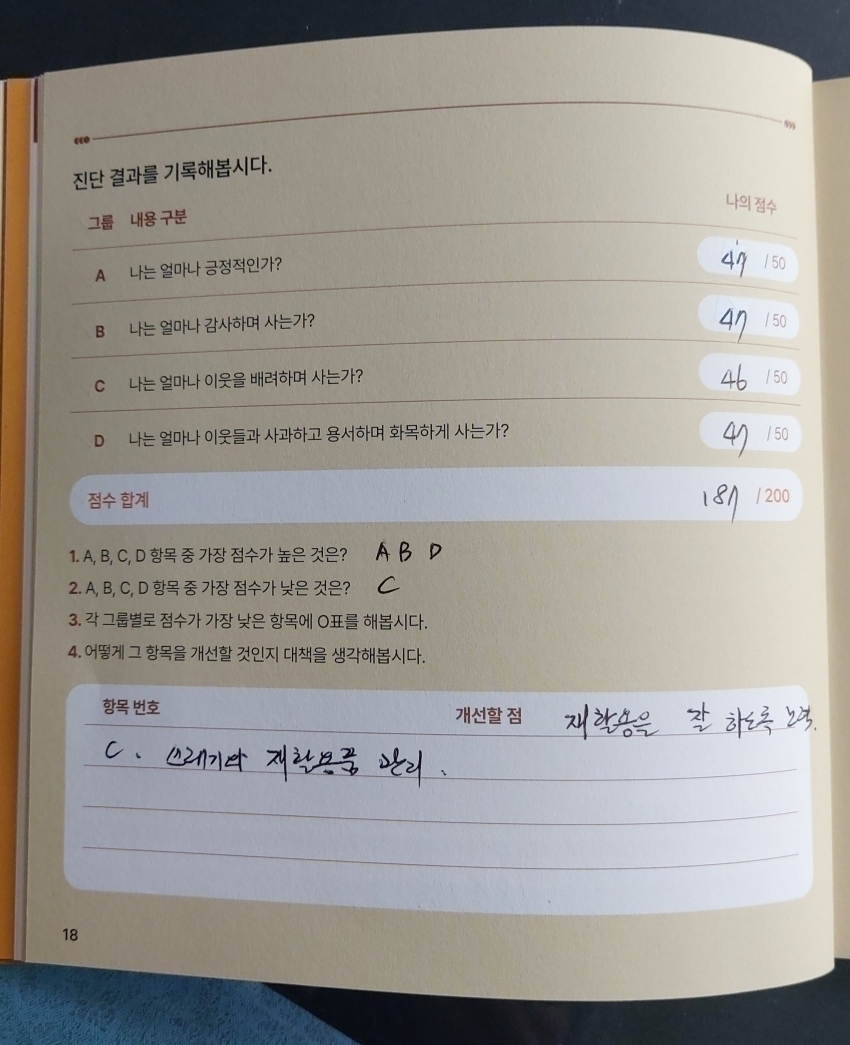 진단 결과를 기록해봅시다.
그룹 내용 구분 나의 점수
A 나는 얼마나 긍정적인가? 47 / 50
B 나는 얼마나 감사하며 사는가? 47 / 50
C 나는 얼마나 이웃을 배려하며 사는가? 46 / 50
D 나는 얼마나 이웃들과 사과하고 용서하며 화목하게 사는가? 47 / 50
점수 합계 187 / 200
1. A, B, C, D 항목 중 가장 점수가 높은 것은? A B D
2. A, B, C, D 항목 중 가장 점수가 낮은 것은? C
3. 각 그룹별로 점수가 가장 낮은 항목에 O표를 해봅시다.
4. 어떻게 그 항목을 개선할 것인지 대책을 생각해봅시다.
항목 번호 개선할 점 재활용을 잘 하도록 노력.
C. 쓰레기와 재활용품 관리.
18